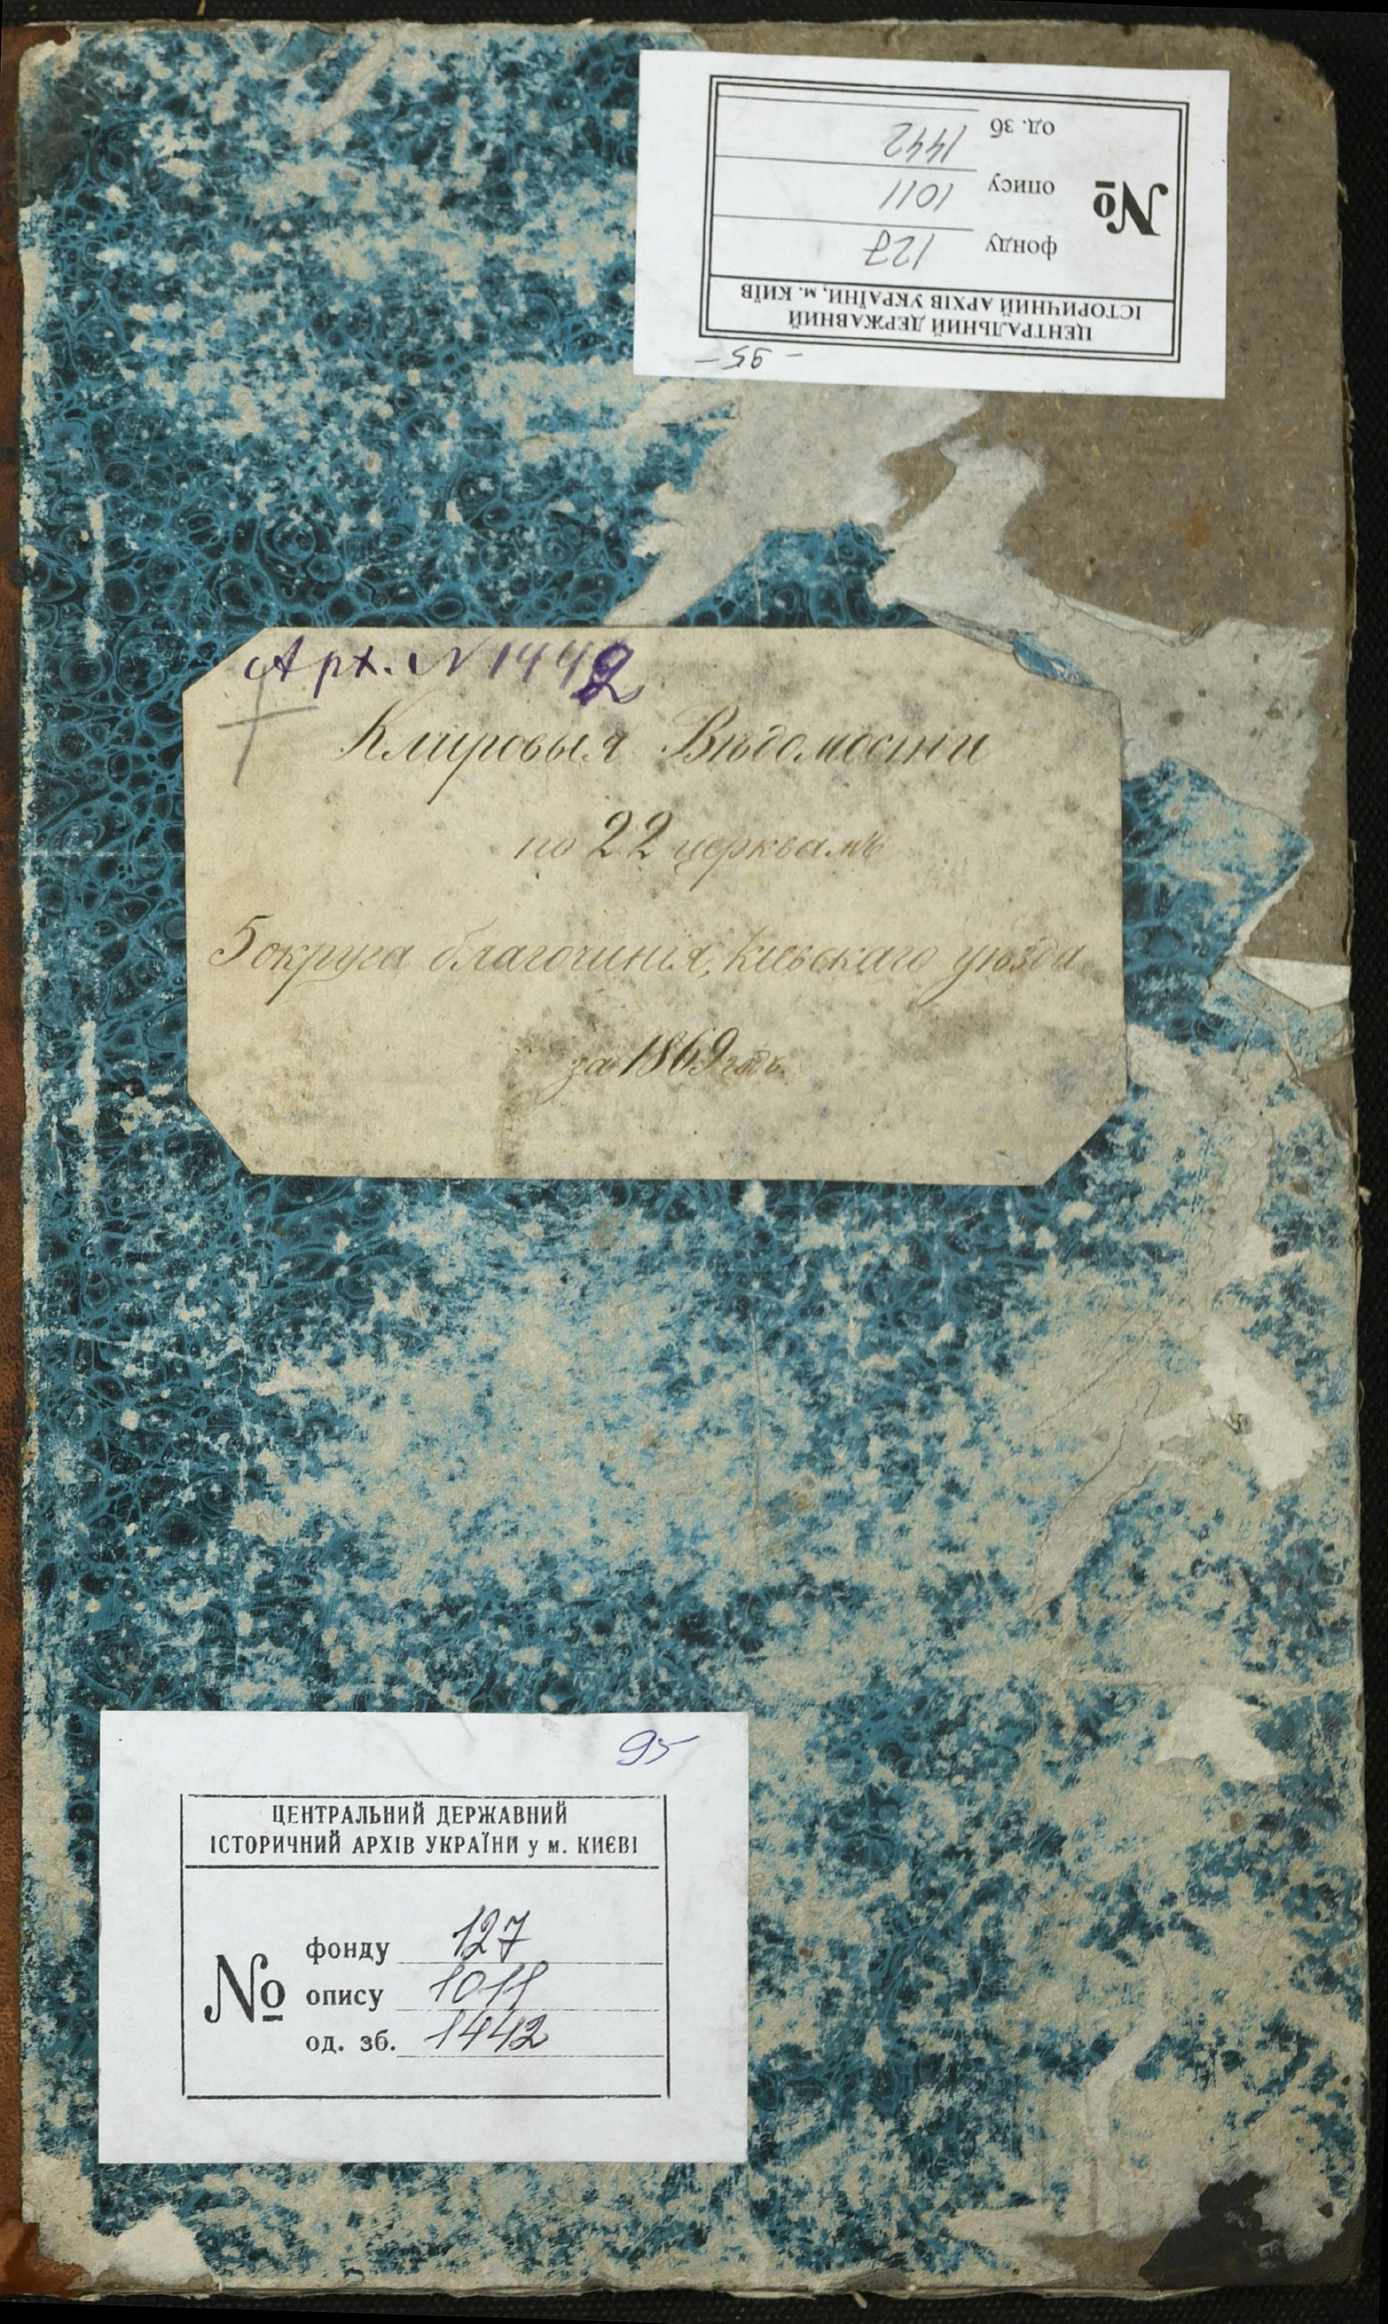 - 95 -
ЦЕНТРАЛЬНИЙ ДЕРЖАВНИЙ
ІСТОРИЧНИЙ АРХІВ УКРАЇНИ, м. КИЇВ
№
фонду 127
опису 1011
од. зб 1442
Арх. N 1442
Клировыя Вѣдомости
по 22 церквамъ
5 округа благочинія, Кіевскаго уѣзда
за 1869 годъ.
95
ЦЕНТРАЛЬНИЙ ДЕРЖАВНИЙ
ІСТОРИЧНИЙ АРХІВ УКРАЇНИ у м. КИЄВІ
№
фонду 127
опису 1011
од. зб. 1442